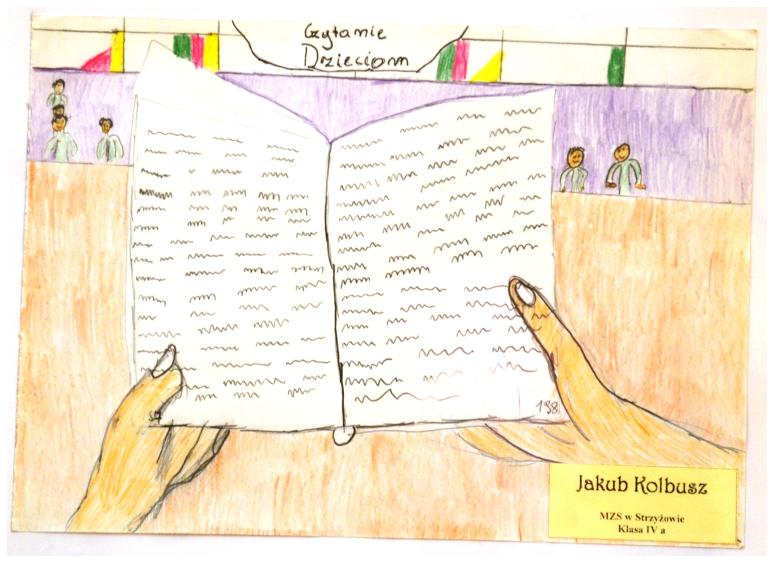 Czytanie
Dzieciom
138
Jakub Kolbusz
MZS w Strzyżowie
Klasa IV a